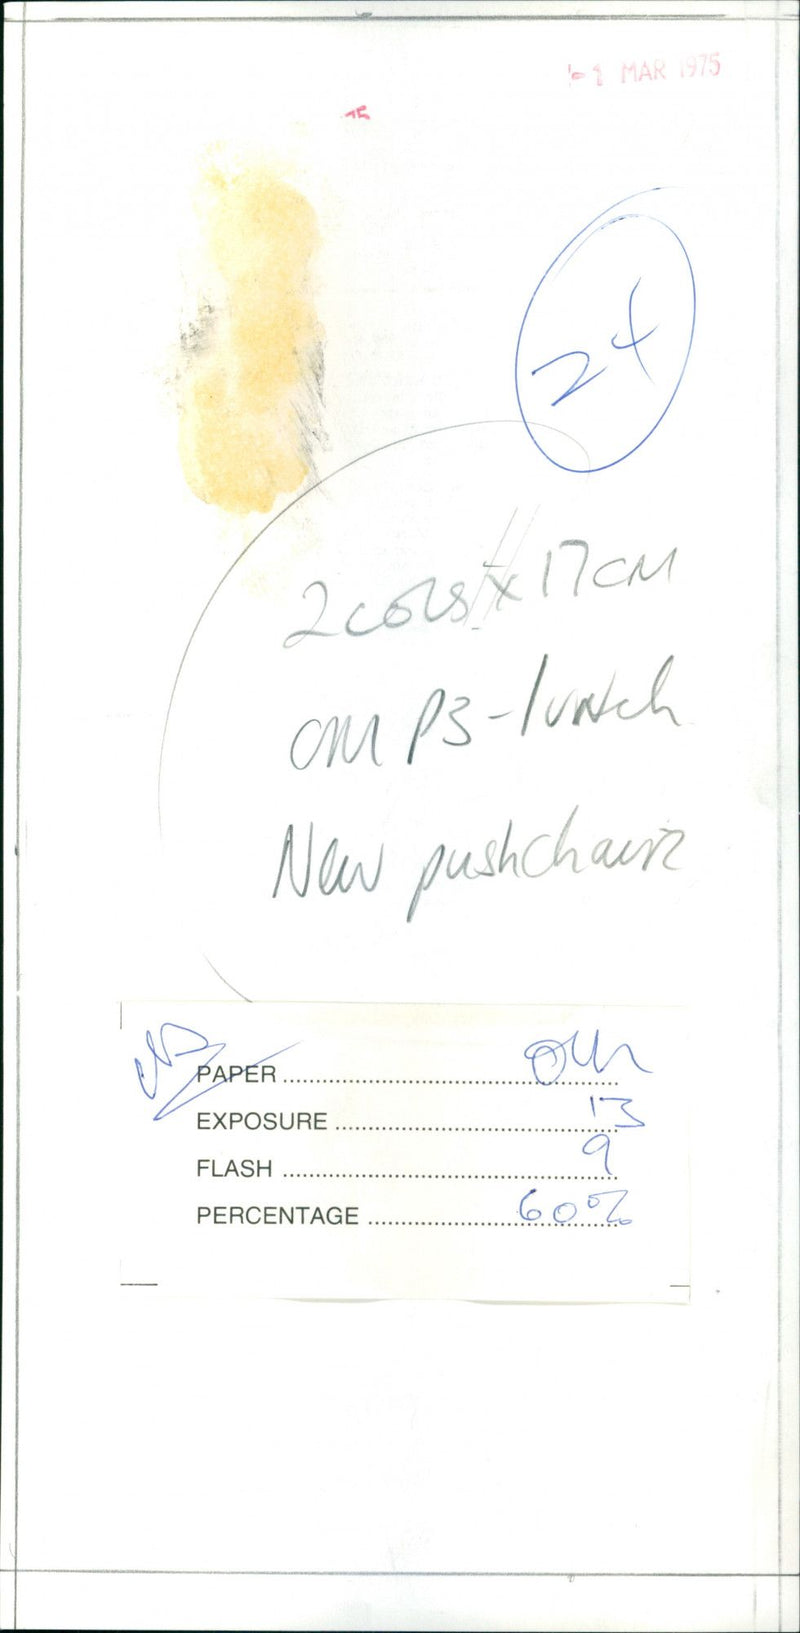 MAR 1975
24
2 COLS x 17 CM
P3 - lunch
New pushchair
PAPER
EXPOSURE 13
FLASH 9
PERCENTAGE 60%